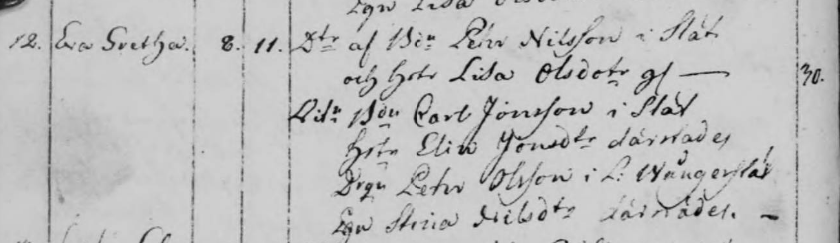 Eva Lisa
12. Eva Gretha. 8. 11. Dtr af Bdn Petr Nilsson i Slät
och hstr Lisa Olsdotr gl — 30.
Vitn Bdn Carl Jonsson i Slät
hstr Elin Jonsdtr därstädes
Drgn Petr Olsson i L:
Pgn Stina Nilsdtr därstädes. —